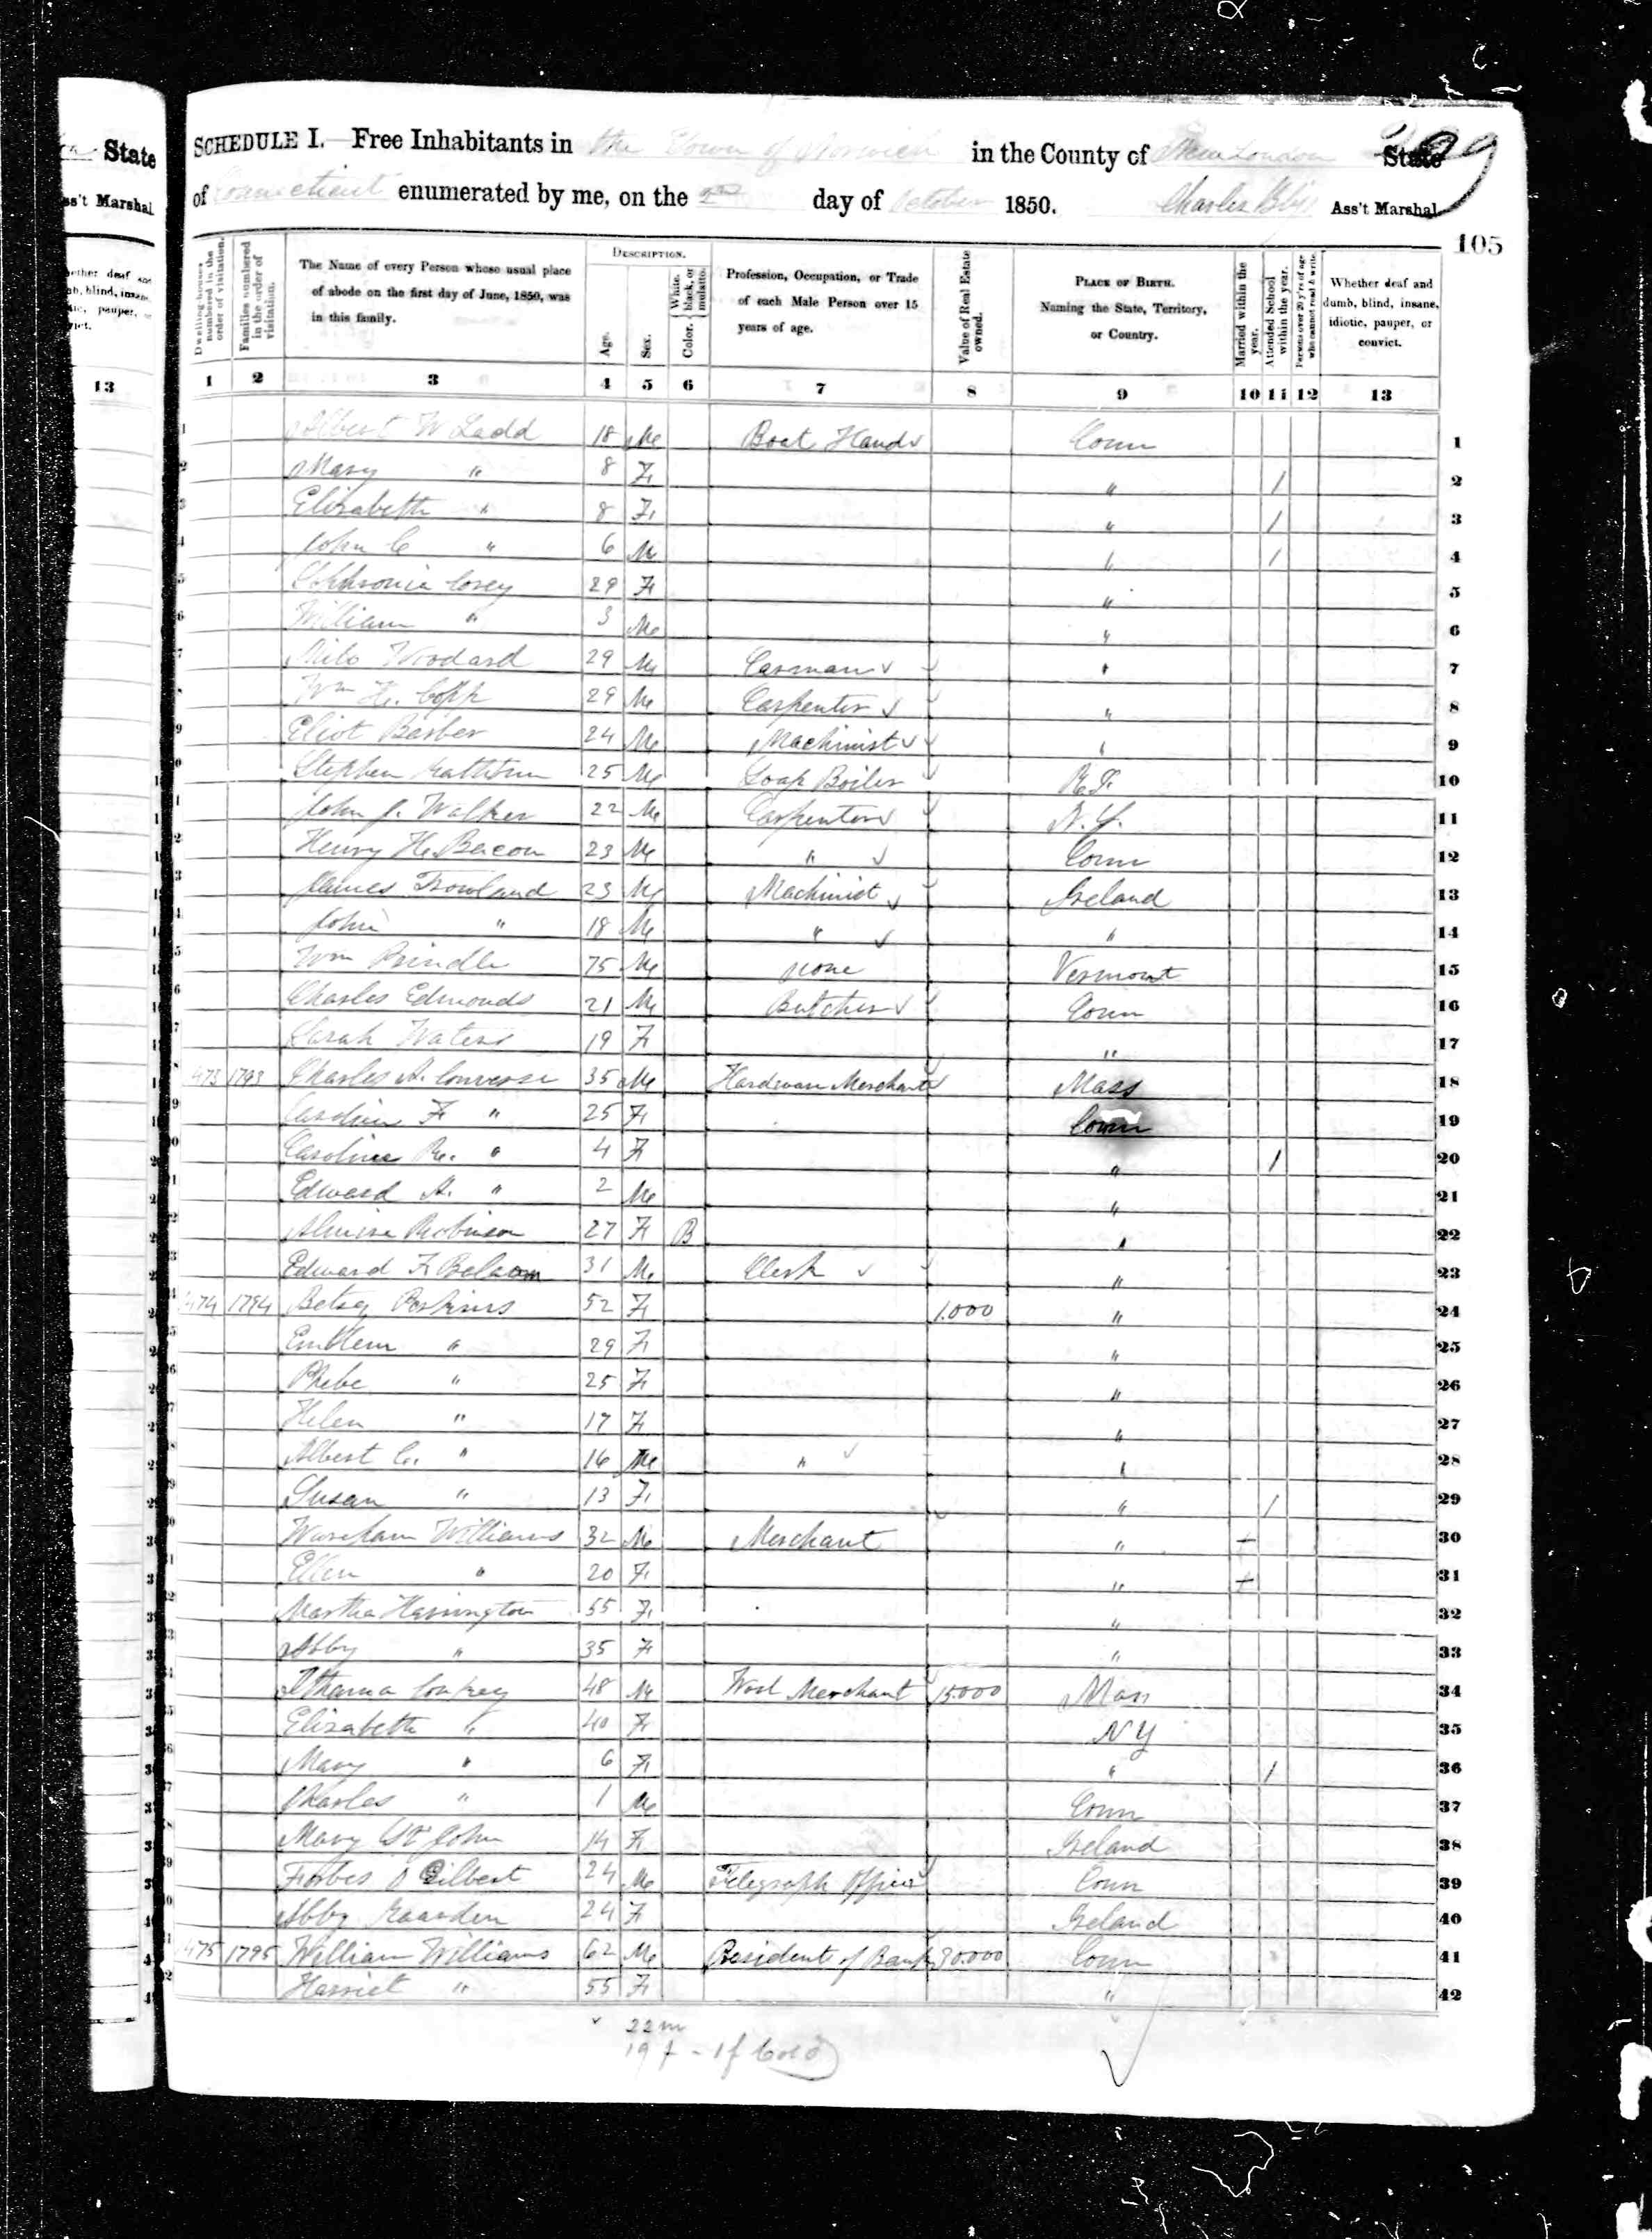 State
ss't Marshal
13
SCHEDULE I. Free Inhabitants in the Town of Norwich in the County of New London State
of Connecticut enumerated by me, on the 2nd day of October 1850. Charles Bliss Ass't Marshal
105
Dwelling-houses numbered in the order of visitation.
Families numbered in the order of visitation.
The Name of every Person whose usual place of abode on the first day of June, 1850, was in this family.
DESCRIPTION.
Age.
Sex.
Color. White, black, or mulatto.
Profession, Occupation, or Trade of each Male Person over 15 years of age.
Value of Real Estate owned.
PLACE OF BIRTH. Naming the State, Territory, or Country.
Married within the year.
Attended School within the year.
Persons over 20 y'rs of age who cannot read & write.
Whether deaf and dumb, blind, insane, idiotic, pauper, or convict.
1 2 3 4 5 6 7 8 9 10 11 12 13
1 Albert W Ladd 18 M Boat Hand Conn 1
2 Mary " 8 F " / 2
3 Elizabeth " 8 F " / 3
4 John C " 6 M " / 4
5 Sophronia Corey 29 F " 5
6 William " 3 M " 6
7 Milo Woodard 29 M Carman " 7
8 Wm H. Copp 29 M Carpenter " 8
9 Eliot Barber 24 M Machinist " 9
10 Stephen Rathbun 25 M Soap Boiler R.I. 10
11 John J. Walker 22 M Carpenter N.Y. 11
12 Henry H. Bacon 23 M " Conn 12
13 James Rowland 23 M Machinist Ireland 13
14 John " 18 M " " 14
15 Wm Prindle 75 M none Vermont 15
16 Charles Edmonds 21 M Butcher Conn 16
17 Sarah Waters 19 F " 17
473 1793 Charles A. Converse 35 M Hardware Merchant Mass 18
19 Caroline F " 25 F Conn 19
20 Caroline R. " 4 F " / 20
21 Edward A. " 2 M " 21
22 Almira Robinson 27 F B " 22
23 Edward F. 31 M Clerk " 23
474 1794 Betsey Perkins 52 F 1.000 " 24
25 Emblem " 29 F " 25
26 Phebe " 25 F " 26
27 Helen " 17 F " 27
28 Albert C. " 16 M " " 28
29 Susan " 13 F " / 29
30 Wareham Williams 32 M Merchant " + 30
31 Ellen " 20 F " + 31
32 Martha Harrington 55 F " 32
33 Abby " 35 F " 33
34 Ithama Conkey 48 M Wool Merchant 15.000 Mass 34
35 Elizabeth " 40 F NY 35
36 Mary " 6 F " / 36
37 Charles " 1 M Conn 37
38 Mary St John 14 F Ireland 38
39 Forbes D Gilbert 24 M Telegraph Office Conn 39
40 Abby 24 F Ireland 40
475 1795 William Williams 62 M President of Bank 30.000 Conn 41
42 Harriet " 55 F " 42
22 m
19 f - 1 f Cold